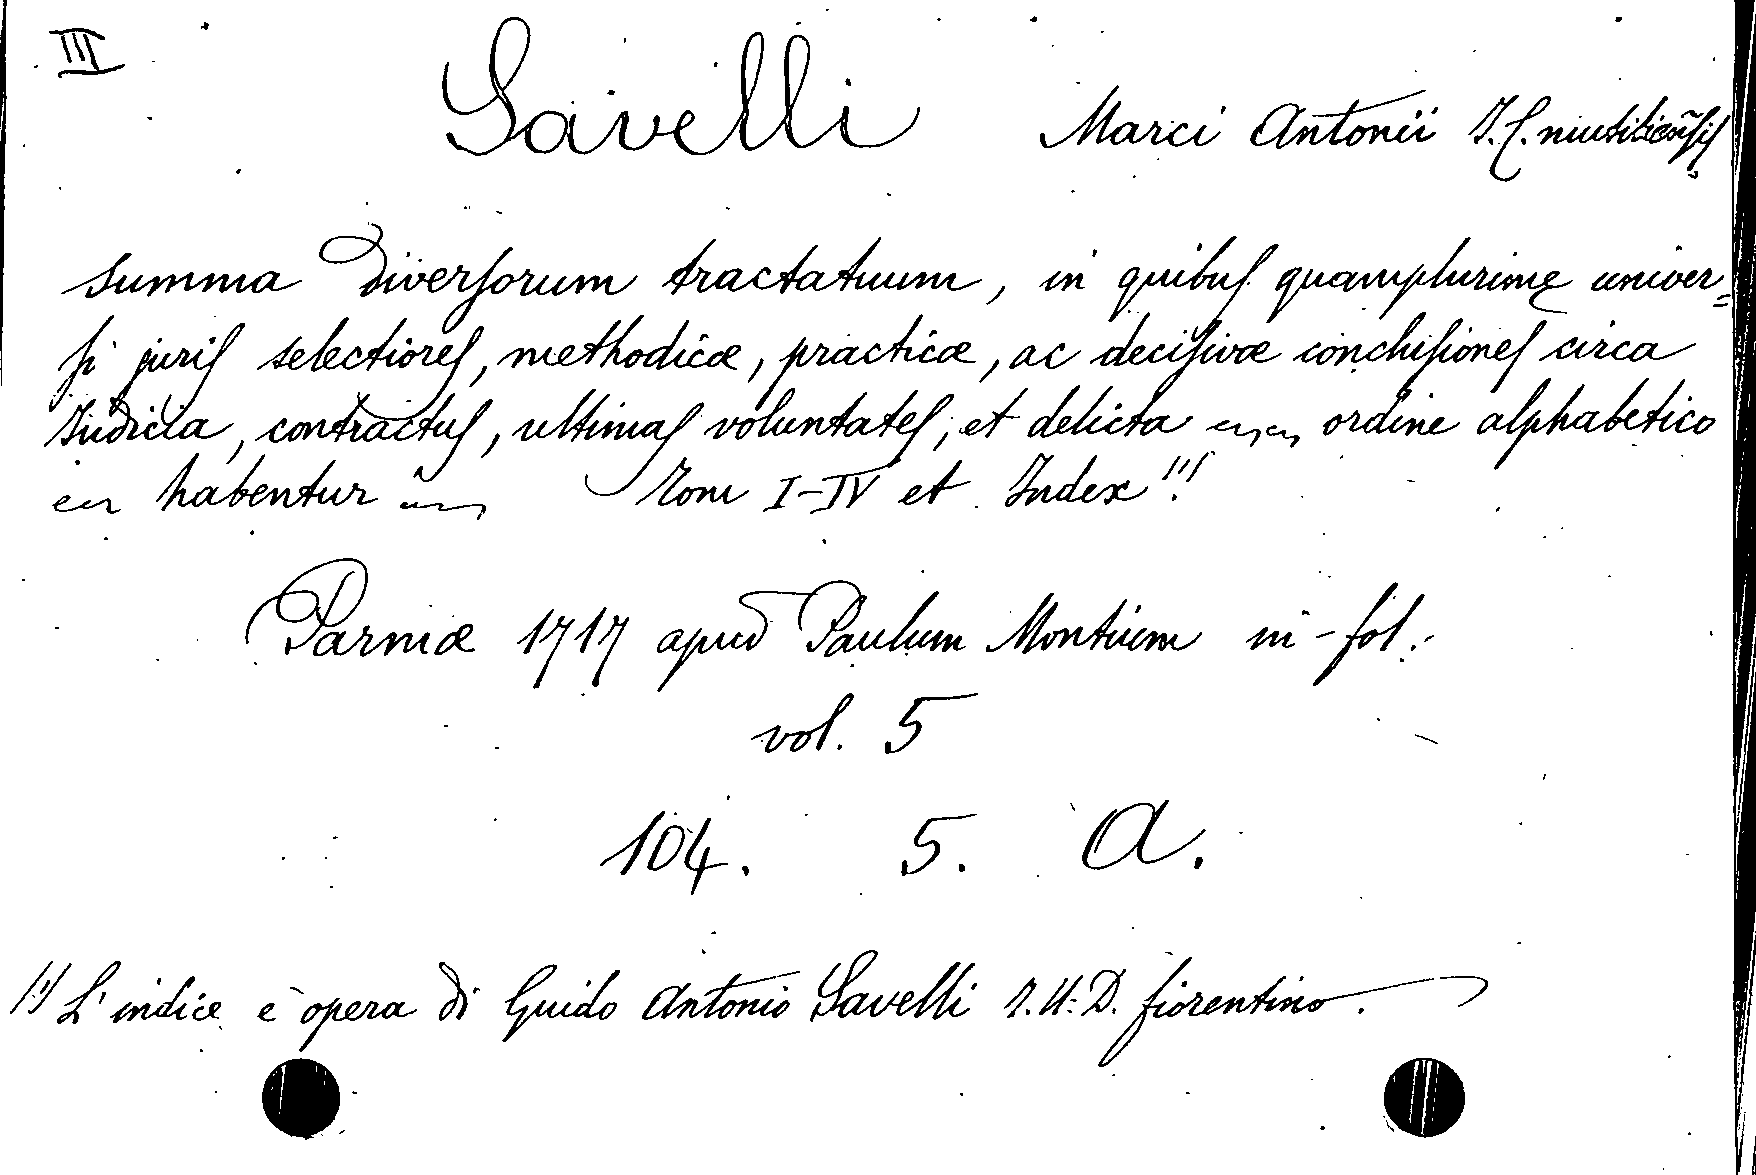 III
Savelli Marci Antonii J.C. mutiliensis
summa diversorum tractatuum, in quibus quamplurimę univer=
si juris selectiores, methodicæ, practicæ, ac decisivæ conclusiones circa
Judicia, contractus, ultimas voluntates, et delicta ordine alphabetico
habentur Tom I-IV et Index (1)
Parmæ 1717 apud Paulum Montium in-fol:
vol. 5
104. 5. A.
(1) L'indice è opera di Guido Antonio Savelli J.U:D. fiorentino.